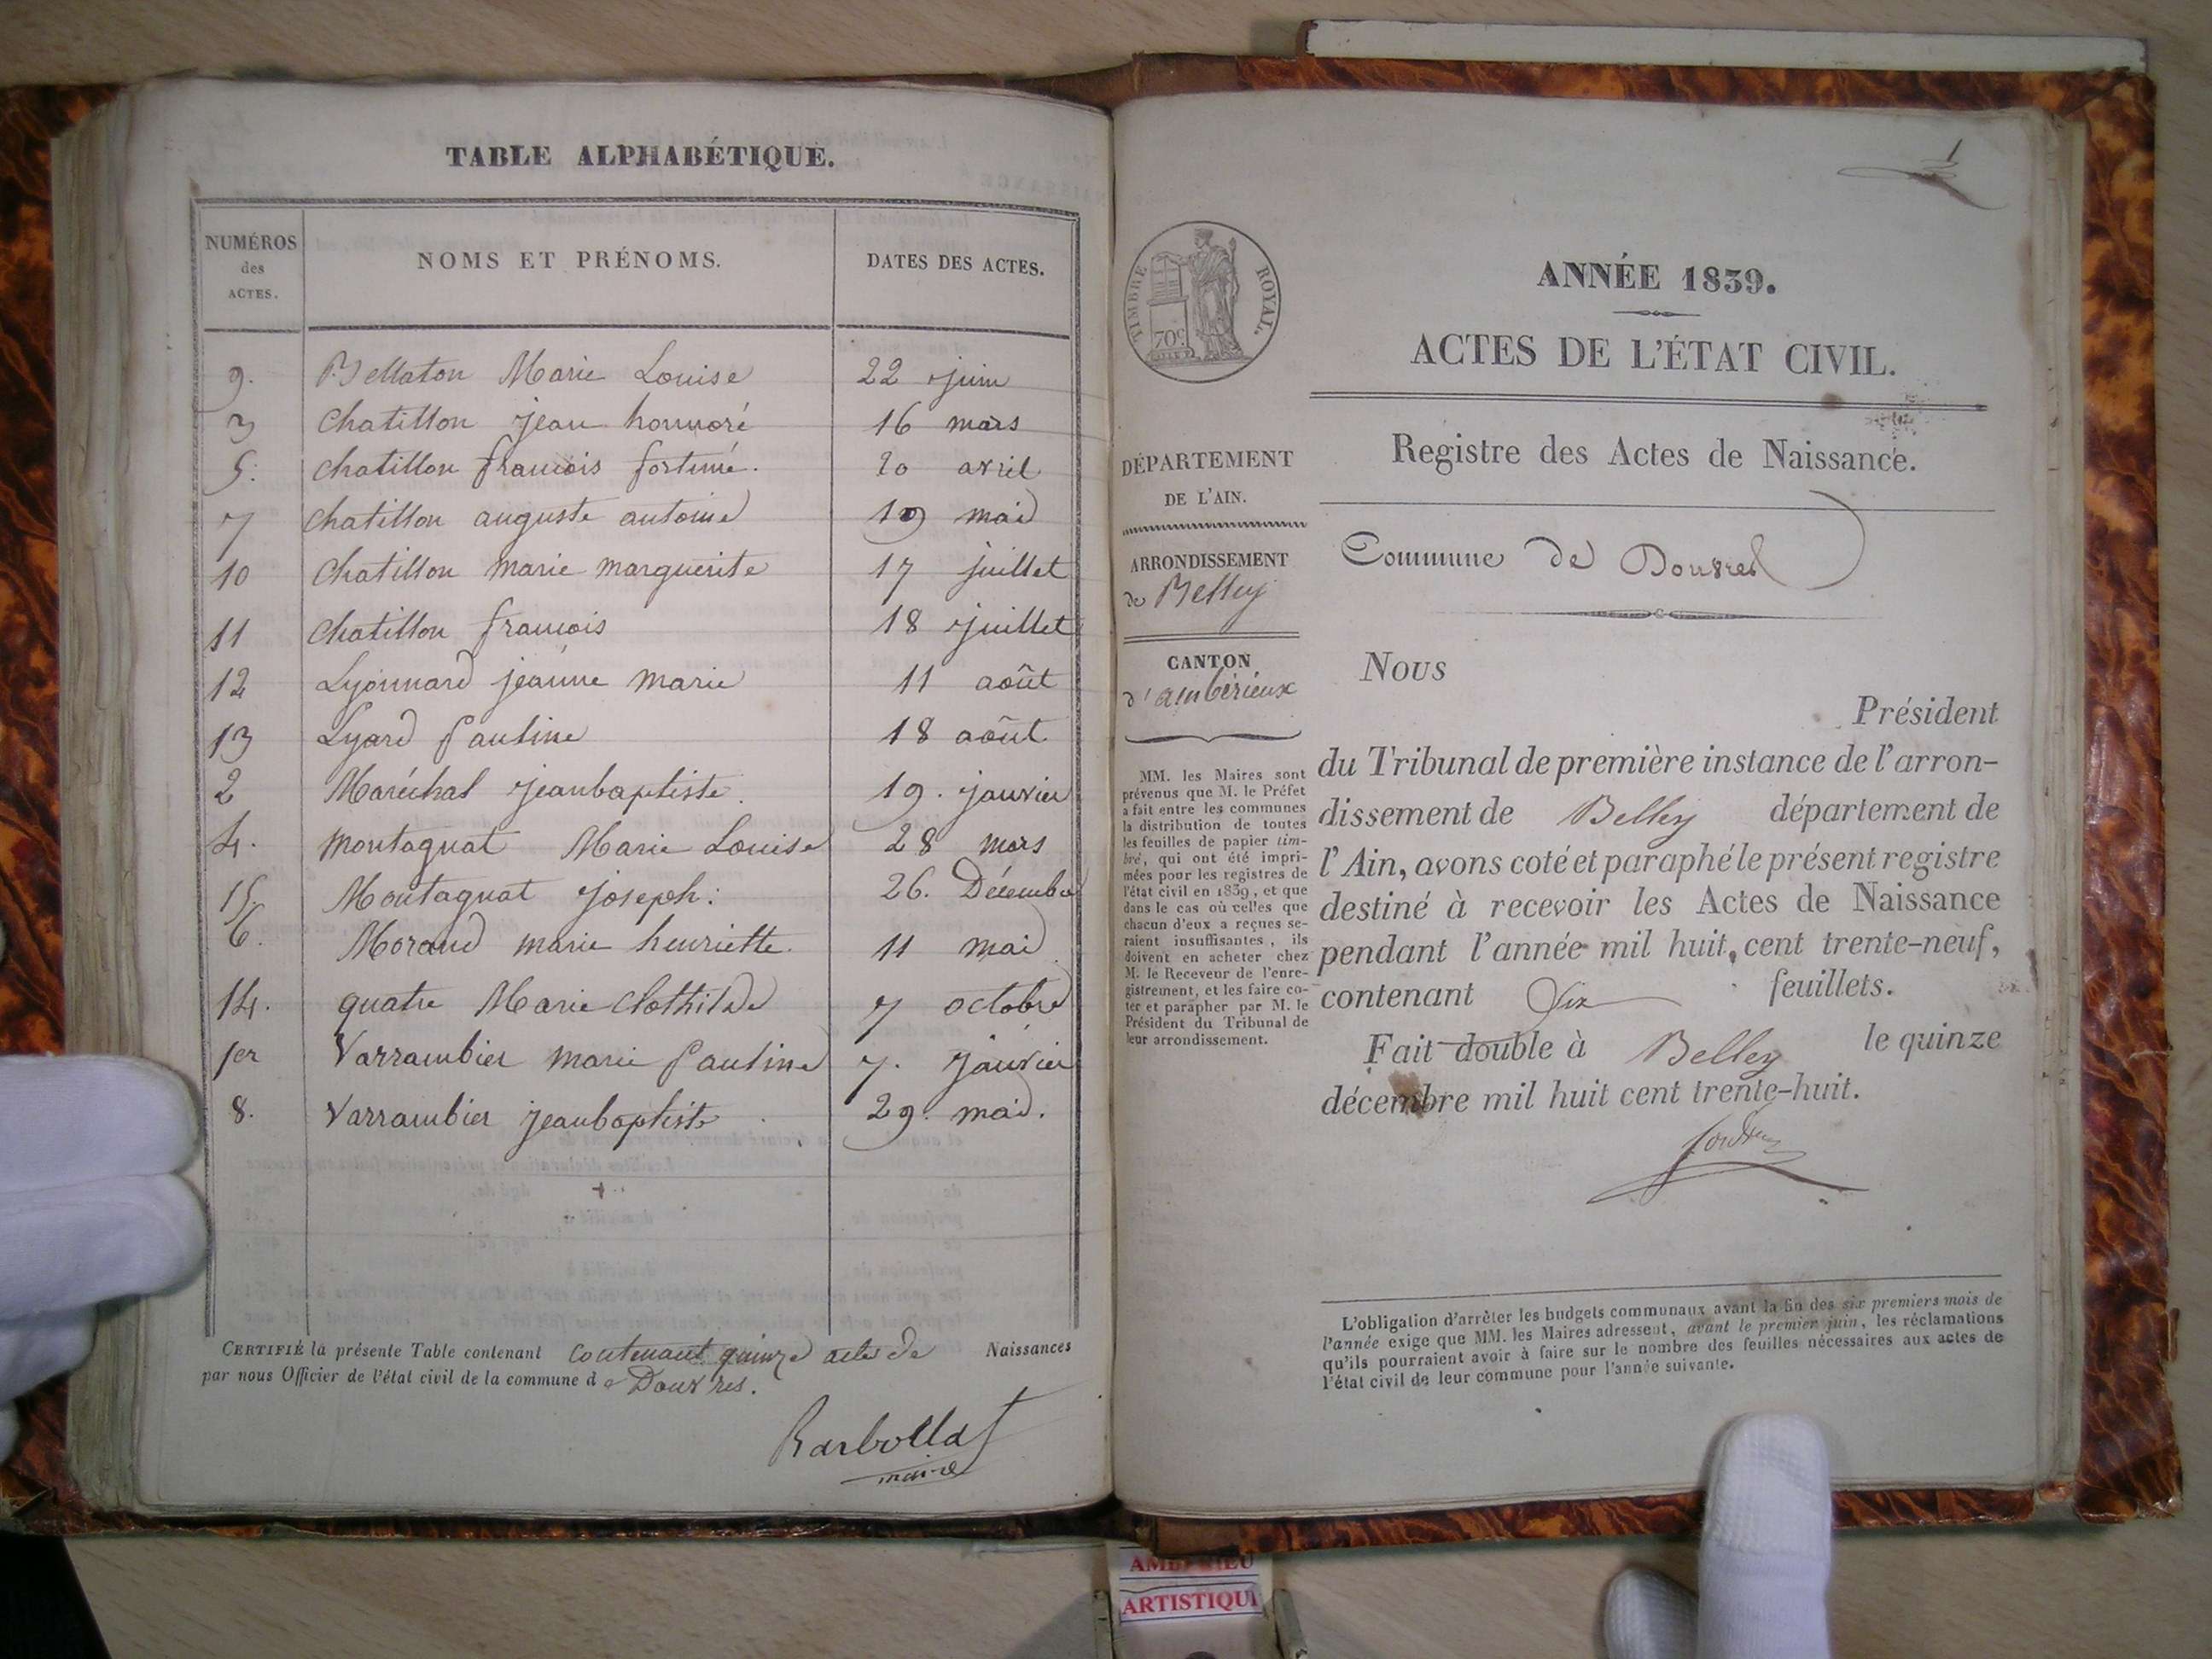 TABLE ALPHABÉTIQUE.
NUMÉROS des ACTES.
NOMS ET PRÉNOMS.
DATES DES ACTES.
9. Bellaton Marie Louise 22 juin
3 chatillon jean honnoré 16 mars
5. chatillon francois fortuné. 20 avril
7 chatillon auguste antoine 19 mai
10 chatillon marie marguerite 17 juillet
11 chatillon francois 18 juillet
12 Lyonnard jeanne marie 11 août
13 Lyard Pauline 18 août
2 Maréchal jeanbaptiste. 19. janvier
4. montagnat Marie Louise 28 mars
15 Montagnat joseph. 26. Décembre
6. Morand marie henriette. 11 mai
14. quatre Marie Clothilde 7 octobre
1er Varrambier marie Pauline 7. janvier
8. Varrambier jeanbaptiste 29. mai.
CERTIFIÉ la présente Table contenant contenant quinze actes de Naissances
par nous Officier de l'état civil de la commune de Douvres.
Barbollat
maire
1
TIMBRE ROYAL.
70c
ANNÉE 1839.
ACTES DE L'ÉTAT CIVIL.
Registre des Actes de Naissance.
DÉPARTEMENT
DE L'AIN.
ARRONDISSEMENT
de Belley
CANTON
d'ambérieux
MM. les Maires sont
prévenus que M. le Préfet
a fait entre les communes
la distribution de toutes
les feuilles de papier tim-
bré, qui ont été impri-
mées pour les registres de
l'état civil en 1839, et que
dans le cas où celles que
chacun d'eux a reçues se-
raient insuffisantes, ils
doivent en acheter chez
M. le Receveur de l'enre-
gistrement, et les faire co-
ter et parapher par M. le
Président du Tribunal de
leur arrondissement.
Commune de Douvres
Nous
Président
du Tribunal de première instance de l'arron-
dissement de Belley département de
l'Ain, avons coté et paraphé le présent registre
destiné à recevoir les Actes de Naissance
pendant l'année mil huit cent trente-neuf,
contenant Six feuillets.
Fait double à Belley le quinze
décembre mil huit cent trente-huit.
L'obligation d'arrêter les budgets communaux avant la fin des six premiers mois de
l'année exige que MM. les Maires adressent, avant le premier juin, les réclamations
qu'ils pourraient avoir à faire sur le nombre des feuilles nécessaires aux actes de
l'état civil de leur commune pour l'année suivante.
ARTISTIQU